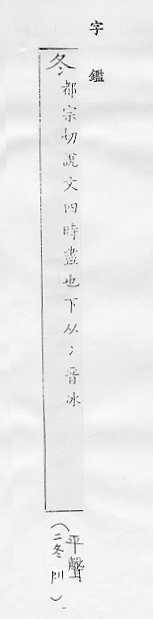 字鑑
冬 都宗切說文四時盡也下从冫音冰
平聲
（二冬 
）